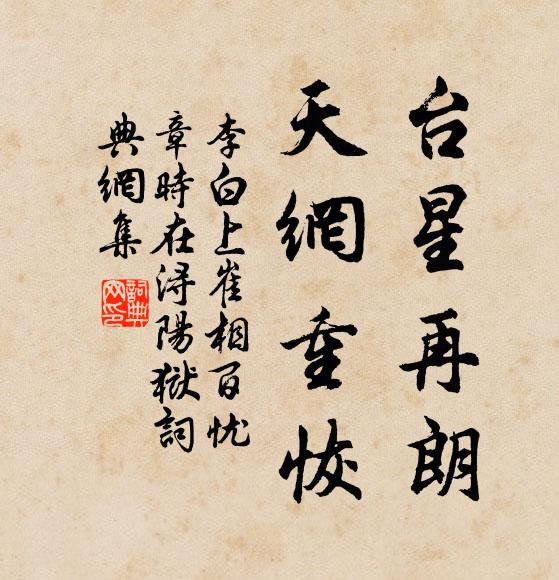 台星再朗
天網重恢
李白上崔相百忧
章時在浔陽獄詞
典網集
詞典
网印